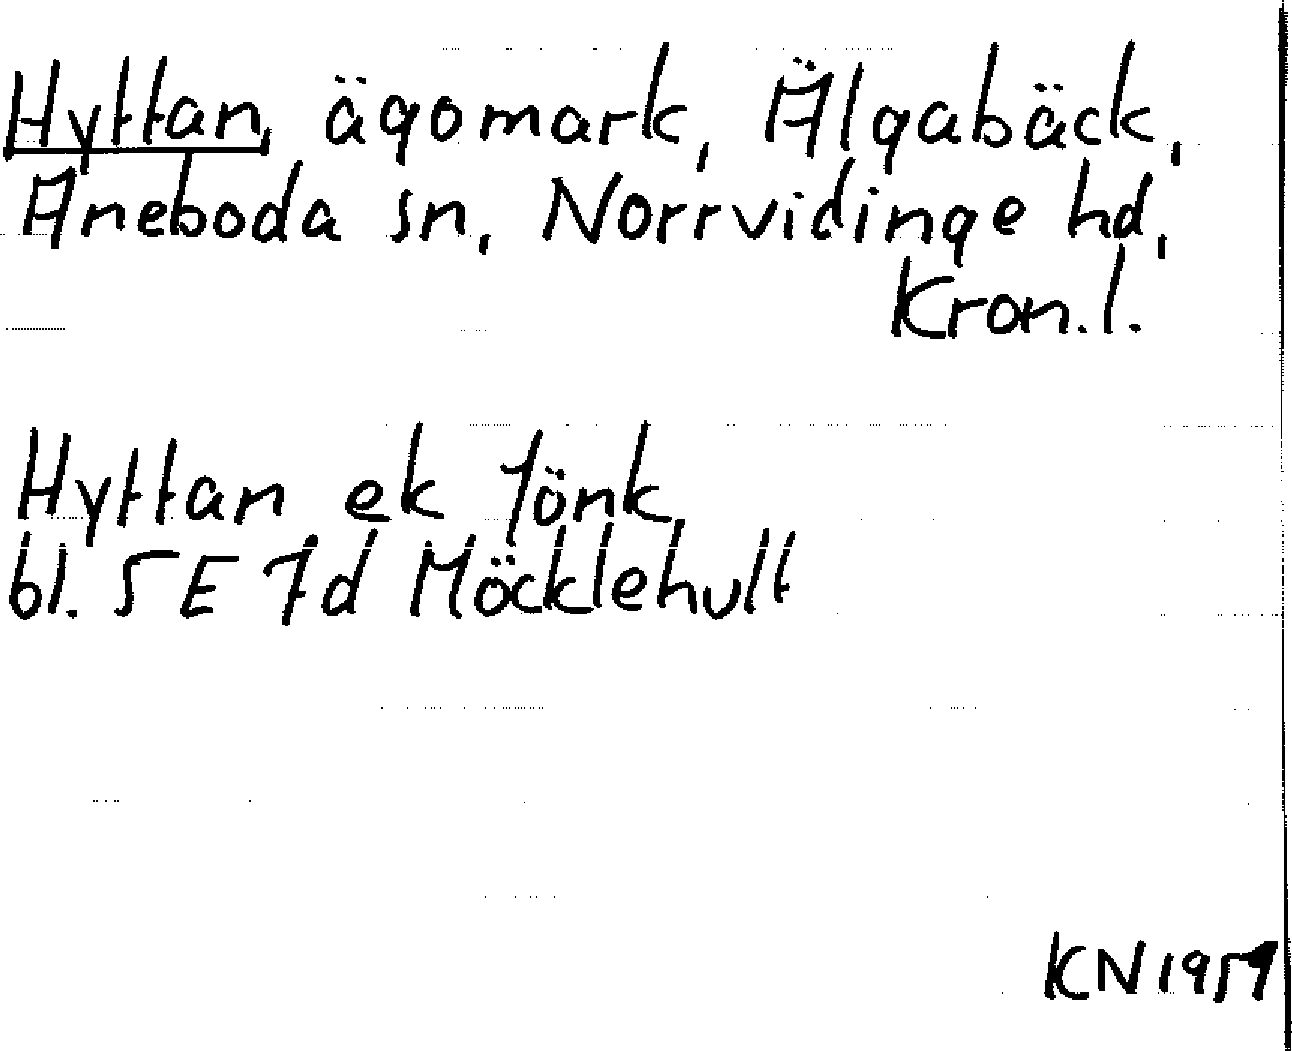 Hyttan, ägomark, Älgabäck,
Aneboda sn, Norrvidinge hd,
Kron.l.
Hyttan ek Jönk,
bl. 5E 7d Möcklehult
KN 1959